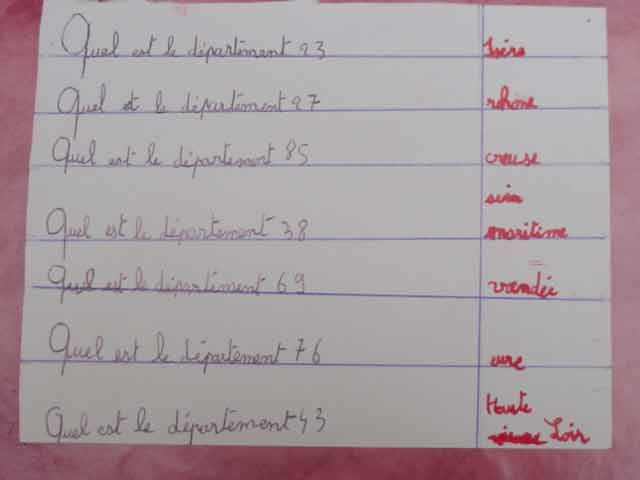 Quel est le département 23 Isère
Quel et le département 27 rhône
Quel est le département 85 creuse
seine
Quel est le département 38 maritime
Quel est le département 69 vendée
Quel est le département 76 eure
Haute
Quel est le département 43 Loir